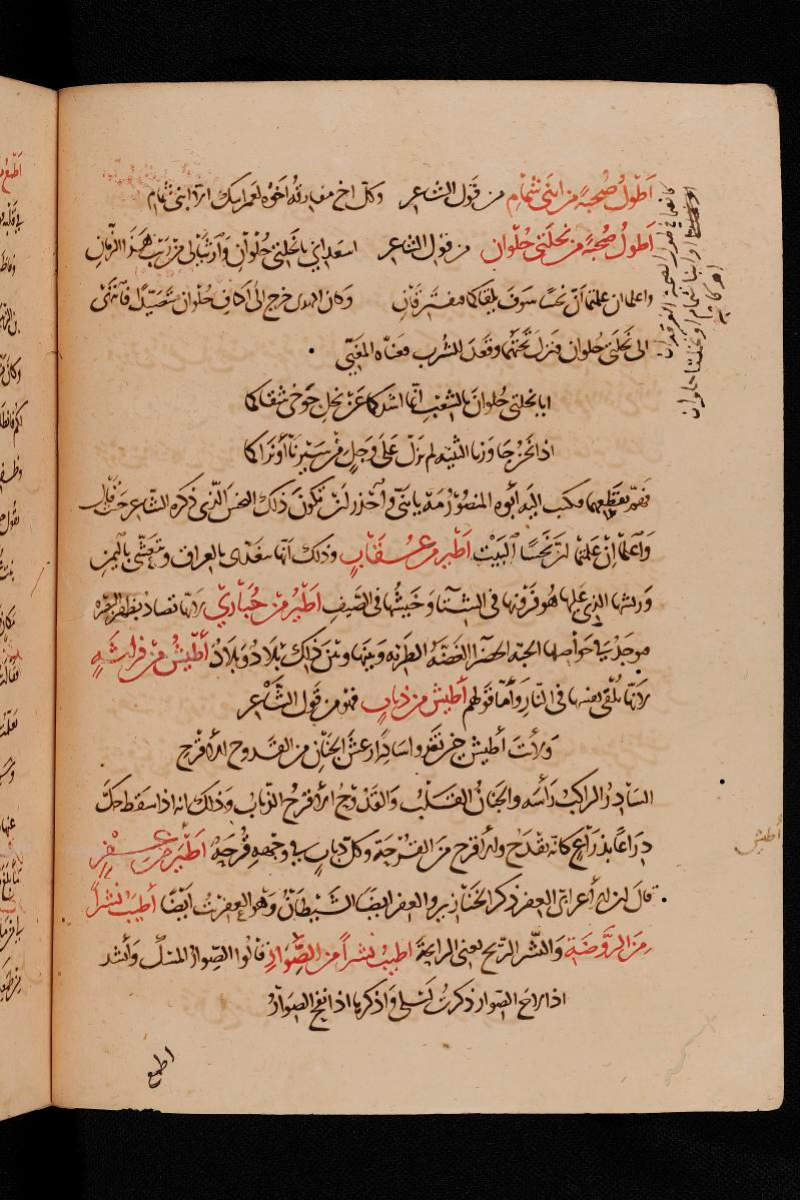 أطول صحبة من ابني شمام من قول الشاعر وكل اخ مفارقه اخوه لعمر ابيك الا ابني شمام
أطول صحبة من نخلتي حلوان من قول الشاعر اسعداني يا نخلتي حلوان وارثيا لي من ريب هذا الزمان
واعلما ان علمتما أن نحسا سوف يلقاكما فتفترقان وكان المهدي خرج الى أكناف حلوان متصيدا فانتهى
الى نخلتي حلوان فنزل تحتهما وقعد للشرب فغناه المغني
ايا نخلتي حلوان بالشعب انما اشذكما عن نخل جوخى شقاكما
اذا نحن جاوزنا الثنية لم نزل على وجل من سيرنا أو نراكما
فهم بقطعهما فكتب اليه أبوه المنصور مه يا بني واحذر أن تكون ذلك النحس الذي ذكره الشاعر حيث قال
واعلما إن علمتما أن نحسا البيت أطير من عقاب وذلك أنها تتغدى بالعراق وتتعشى باليمن
وريشها الذي عليها هو فروتها في الشتاء وخيشها في الصيف أطير من حبارى لأنها تصاد بظهر البصرة
فيوجد في حواصلها الحبة الخضراء الغضة الطرية وبينها وبين ذلك بلاد وبلاد أطيش من فراشة
لأنها تلقي نفسها في النار وأما قولهم أطيش من ذباب فهو من قول الشاعر
ولأنت أطيش حين تغدو سادرا رعش الجنان من القدوح الأقرح
السادر الراكب رأسه والجنان القلب والقدوح الأقرح الذباب وذلك انه اذا سقط حك
ذراعا بذراع كانه يقدح والأقرح من القرحة وكل ذباب في وجهه قرحة أطير من عفر
قال ابن الأعرابي العفر ذكر الخنازير والعفر ايضا الشيطان وهو العفريت أيضا أطيب نشرا
من الروضة والنشر الريح يعني الرائحة أطيب نشرا من الصوار قالوا الصوار المسك وأنشد
اذا راح الصوار ذكرت ليلى واذكرها اذا نفح الصوار
اطمع
أطيش